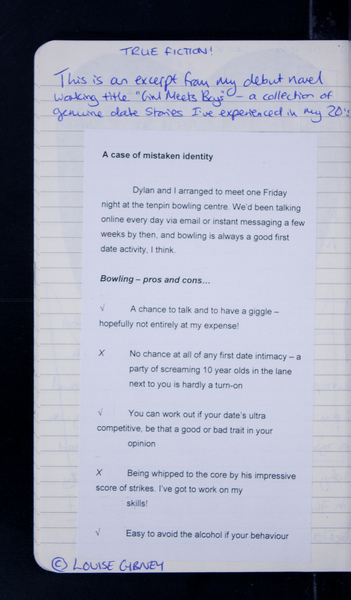 TRUE FICTION!
This is an excerpt from my debut novel
working title "Girl Meets Boy" - a collection of
genuine date stories I've experienced in my 20's
A case of mistaken identity
Dylan and I arranged to meet one Friday
night at the tenpin bowling centre. We'd been talking
online every day via email or instant messaging a few
weeks by then, and bowling is always a good first
date activity, I think.
Bowling – pros and cons…
√ A chance to talk and to have a giggle –
hopefully not entirely at my expense!
X No chance at all of any first date intimacy – a
party of screaming 10 year olds in the lane
next to you is hardly a turn-on
√ You can work out if your date's ultra
competitive, be that a good or bad trait in your
opinion
X Being whipped to the core by his impressive
score of strikes. I've got to work on my
skills!
√ Easy to avoid the alcohol if your behaviour
© LOUISE GIBNEY